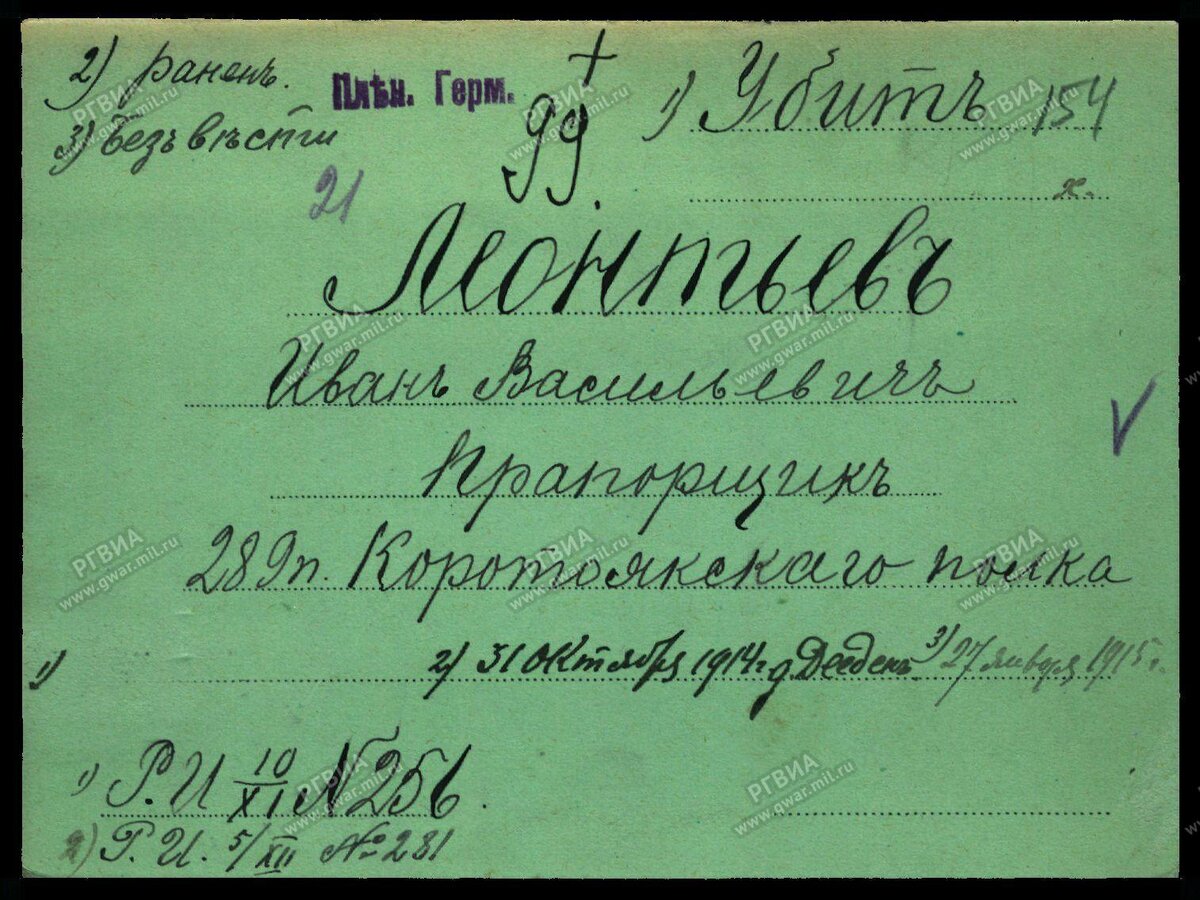 2) раненъ.
Плѣн. Герм.
1) Убитъ 154
3) Безъ вѣсти
99.
х.
21
Леонтьевъ
Иванъ Васильевичъ
Прапорщикъ
289п. Коротоякскаго полка
1) 2) 31 октября 1914 г. д. 3) 27 января 1915 г.
1) Р. И 10/XI № 256.
2) Р. И. 5/XII № 281
РГВИА
www.gwar.mil.ru